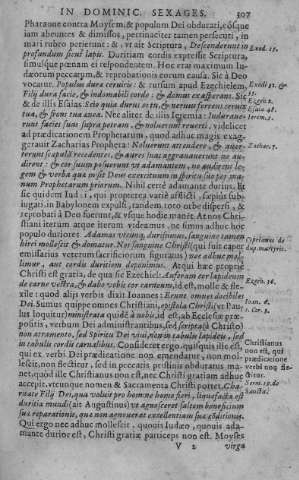 IN DOMINIC. SEXAGES. 307
Pharaone contra Moysem, & populum Dei obdurati, eosque
iam abeuntes & dimissos, pertinaciter tamen persecuti, in
mari rubro perierunt: &, vt ait Scriptura, Descenderunt in Exod. 15.
profundum sicut lapis. Duritiam cordis expresse Scriptura,
simulque pœnam ei respondentem. Hoc erat maximum Iu-
dæorum peccatum, & reprobationis eorum causa. Sic à Deo
vocatur, Populus duræ ceruicis: & rursum apud Ezechielem,
Filij dura facie, & indomabili corde: & domus exasperans. Sic
& de illis Esaias, Scio quia durus es tu, & neruus ferreus ceruix
tua, & frons tua ænea. Nec aliter de illis Ieremias: Indurave-
runt facies suas supra petram, & noluerunt reuerti. videlicet
ad prædicationem Prophetarum, quod adhuc magis exag-
gerauit Zacharias Propheta: Noluerunt attendere, & auer- Zachar. 7.
terunt scapulã recedentem, & aures suas aggrauauerunt ne au-
dirent: & cor suum posuerunt vt adamantem, ne audirent le-
gem & verba quæ misit Deus exercituum in spiritu suo per ma-
num Prophetarum priorum. Nihil certè adamante durius. Et
sic quidem Iudæi, qui propterea varie afflicti, sæpius subiu-
gati, in Babylonem expulsi, tandem toto orbe dispersi, &
reprobati à Deo fuerunt, & vsque hodie manẽt. At nos Chri-
stiani iterum atque iterum videamus, ne simus adhuc hoc
populo duriores. Adamas vtique, durissimus, sanguine tamen
hirci mollescit & domatur. Nos sanguine Christi (qui fuit caper
emissarius veterum sacrificiorum figuratus) nec adhuc mol-
limur, aut cordis duritiem deponimus. Atqui hæc propriè
Christi est gratia, de qua sic Ezechiel: Auferam cor lapideum
de carne vestra, & dabo vobis cor carneum, id est, molle & fle-
xile: quod alijs verbis dixit Ioannes: Erunt omnes docibiles
Dei. Sumus quippe omnes Christiani, epistola Christi (vt Pau-
lus loquitur) ministrata quidẽ à nobis, id est, ab Ecclesiæ præ-
positis, verbum Dei administrantibus, sed scripta (à Christo)
non atramento, sed Spiritu Dei viui, non in tabulis lapideis, sed
in tabulis cordis carnalibus. Consideret ergo, quisquis ille est,
qui ex verbi Dei prædicatione non emendatur, non mol-
lescit, non flectitur, sed in peccatis pristinis obduratus ma-
net, quod ille Christianus non est, nec Christi gratiam adhuc
accepit, vtcunque nomen & Sacramenta Christi portet. Cha-
ritate Filij Dei, qua voluit pro homine homo fieri, liquefacta est
duritia mundi (ait Augustinus) vt agnosceret saltem beneficium
suæ reparationis, quæ non agnouerat excellentiam suæ cõditionis.
Qui ergo nec adhuc mollescit, quouis Iudæo, quouis ada-
mante durior est, Christi gratiæ particeps non est. Moyses
V 2 virga
Christianus
non est, qui
prædicatione
verbi nõ